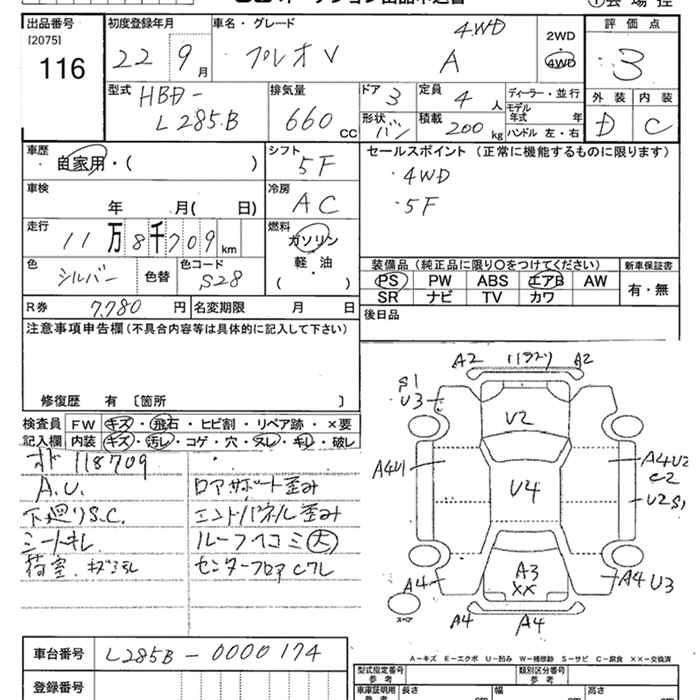 出品番号
[2075]
116
初度登録年月
22 9月
車名・グレード
プレオV 4WD
A
2WD
・
4WD
評価点
3
型式
HBD-
L285B
排気量
660 CC
ドア
3
定員
4 人
形状
バン
積載
200 kg
ディーラー・並行
モデル年式 年
ハンドル 左・右
外装
D
内装
C
車歴
自家用・( )
シフト
5F
セールスポイント (正常に機能するものに限ります)
・4WD
・5F
車検
年 月( 日)
冷房
AC
走行
11万8千709km
燃料
ガソリン
軽・油
( )
色
シルバー
色替
色コード
S28
装備品 (純正品に限り○をつけてください)
PS PW ABS エアB AW
SR ナビ TV カワ
新車保証書
有・無
R券 7,780 円
名変期限 月 日
後日品
注意事項申告欄 (不具合内容等は具体的に記入して下さい)
修復歴 有 [箇所 ]
検査員
記入欄
FW キズ・飛石・ヒビ割・リペア跡・×要
内装 キズ・汚レ・コゲ・穴・スレ・キレ・破レ
118709
A.U.
下廻りS.C.
シートキレ
荷室.キズ汚レ
ロアサポート歪み
エンドパネル歪み
ルーフヘコミ大
センターフロアCワレ
A2 A2
S1
U3
U2
A4U1
U4
A4U2
C2
U2S1
A3
XX
A4
A4U3
A4 A4
スペア
車台番号
L285B-0000174
A-キズ E-エクボ U-凹み W-補修跡 S-サビ C-腐食 ××-交換済
登録番号
型式指定番号
参考
類別区分番号
参考
車庫証明用
参考
長さ cm
幅 cm
高さ cm